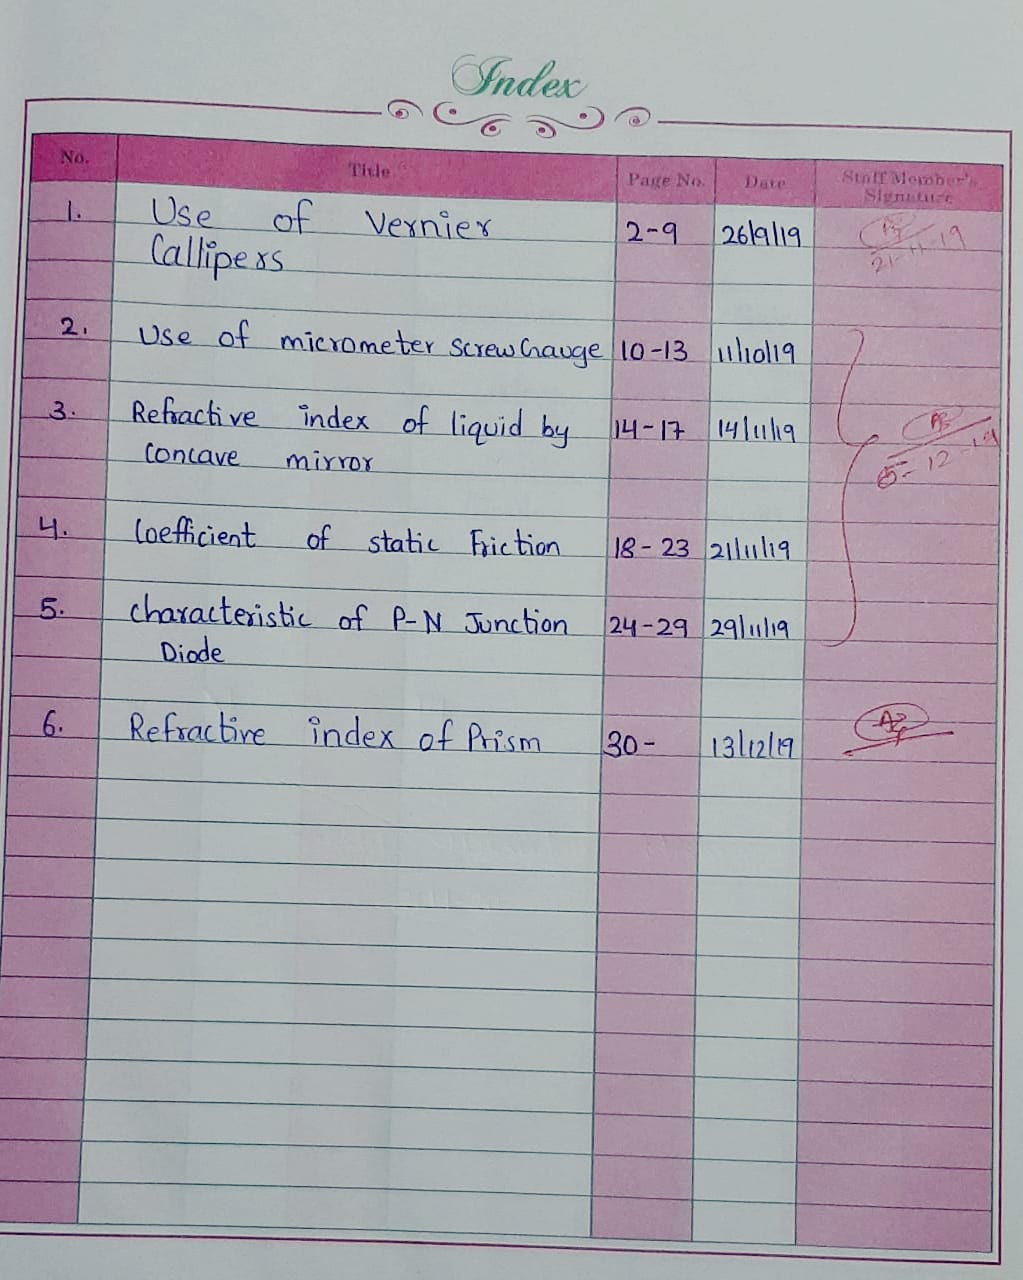 Index
No. Title Page No. Date Staff Member's Signature
1. Use of Vernier 2-9 26/9/19
Callipers 21-11-19
2. Use of micrometer screw Gauge 10-13 11/10/19
3. Refractive index of liquid by 14-17 14/11/19
Concave mirror 5-12-19
4. Coefficient of static Friction 18-23 21/11/19
5. Characteristic of P-N Junction 24-29 29/11/19
Diode
6. Refractive index of Prism 30- 13/12/19